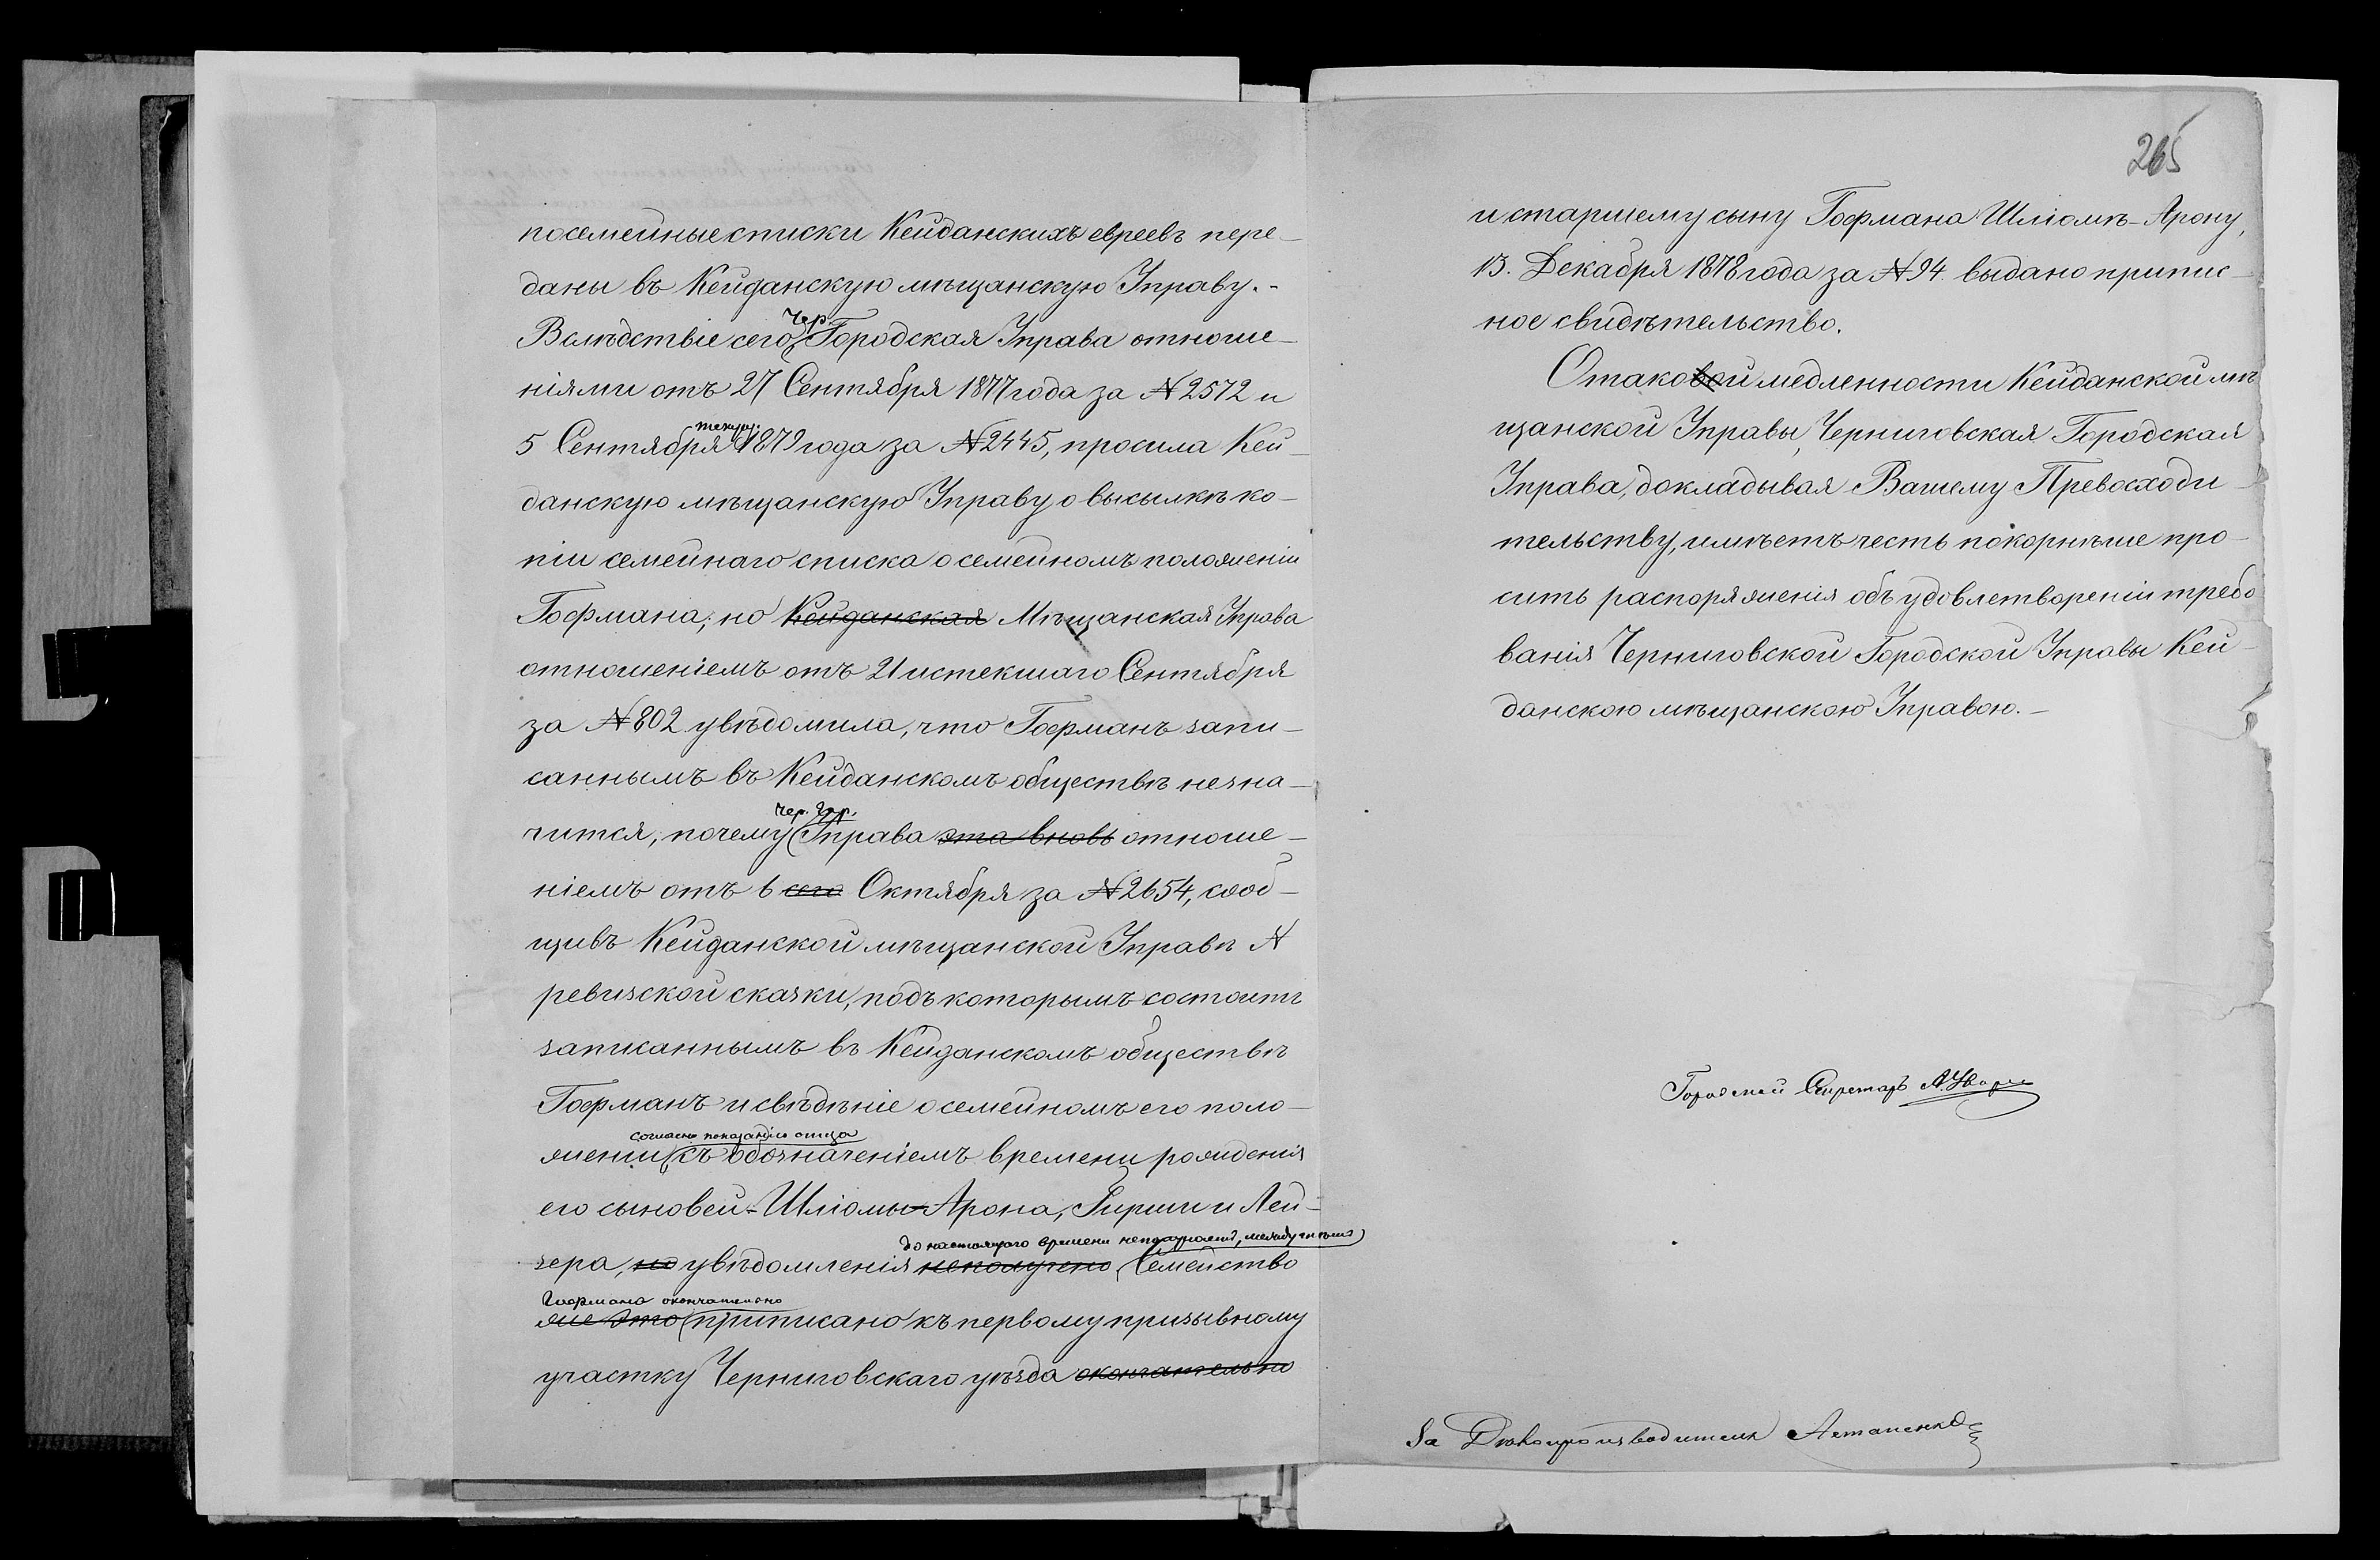 посемейные списки Кейданскихъ евреевъ пере-
даны въ Кейданскую мѣщанскую Управу.-
Чер.
Вслѣдствіе сего Городская Управа отноше-
ніями отъ 27 Сентября 1877 года за № 2572 и
текущ.
5 Сентября 1879 года за № 2445, просила Кей-
данскую мѣщанскую Управу о высылкѣ ко-
піи семейнаго списка о семейномъ положеніи
Гофмана; но Кейданская Мѣщанская Управа
отношеніемъ отъ 21 истекшаго Сентября
за № 802 увѣдомила, что Гофманъ запи-
саннымъ въ Кейданскомъ обществѣ не зна-
Чер. Гор.
чится, почему Управа эта вновь отноше-
ніемъ отъ 6 сего Октября за № 2654, сооб-
щивъ Кейданской мѣщанской Управѣ №
ревизской сказки, подъ которымъ состоитъ
записаннымъ въ Кейданскомъ обществѣ
Гофманъ и свѣдѣніе о семейномъ его поло-
согласно показанію отца
женіи съ обозначеніемъ времени рожденія
его сыновей - Шліомы-Арона, Гирши и Лей-
до настоящаго времени не, между тѣмъ
зера, но увѣдомленія не получено. Семейство
Гофмана окончательно
же это приписано къ первому призывному
участку Черниговскаго уѣзда окончательно
265
и старшему сыну Гофмана Шліомѣ-Арону,
13. Декабря 1878 года за № 94. выдано припис-
ное свидѣтельство.
О таковой медленности Кейданской мѣ
щанской Управы, Черниговская Городская
Управа, докладывая Вашему Превосходи-
тельству, имѣетъ честь покорнѣше про-
сить распоряженія объ удовлетвореніи требо
ванія Черниговской Городской Управы Кей-
данскою мѣщанскою Управою.-
Городской Секретарь А.
За Дѣлопроизводителя Астапенко